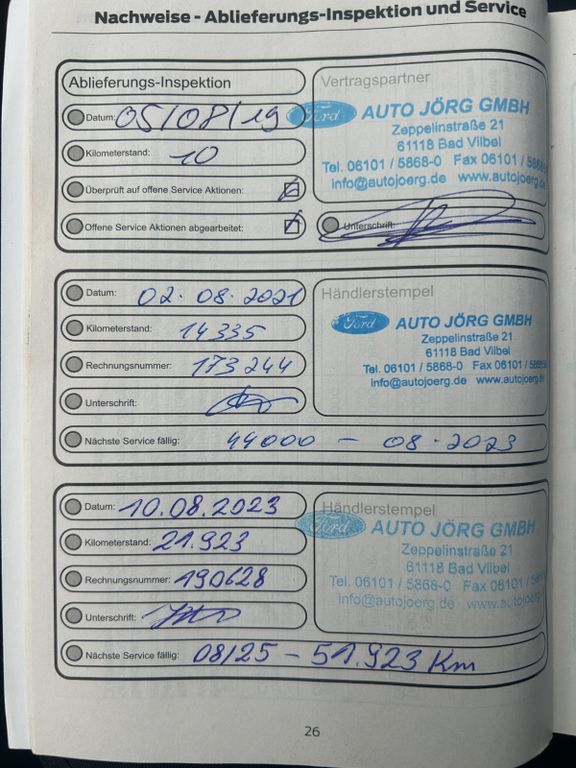 Nachweise - Ablieferungs-Inspektion und Service
Ablieferungs-Inspektion
Datum: 05/08/19
Kilometerstand: 10
Überprüft auf offene Service Aktionen:
Offene Service Aktionen abgearbeitet:
Vertragspartner
Ford AUTO JÖRG GMBH
Zeppelinstraße 21
61118 Bad Vilbel
Tel. 06101 / 5868-0 Fax 06101 /
info@autojoerg.de www.autojoerg.de
Unterschrift:
Datum: 02.08.2021
Kilometerstand: 14335
Rechnungsnummer: 173244
Unterschrift:
Händlerstempel
Ford AUTO JÖRG GMBH
Zeppelinstraße 21
61118 Bad Vilbel
Tel. 06101 / 5868-0 Fax 06101 /
info@autojoerg.de www.autojoerg.de
Nächste Service fällig: 44000 - 08.2023
Datum: 10.08.2023
Kilometerstand: 21.923
Rechnungsnummer: 190628
Unterschrift:
Händlerstempel
Ford AUTO JÖRG GMBH
Zeppelinstraße 21
61118 Bad Vilbel
Tel. 06101 / 5868-0 Fax 06101 /
info@autojoerg.de www.autojoerg.de
Nächste Service fällig: 08/25 - 51.923 Km
26